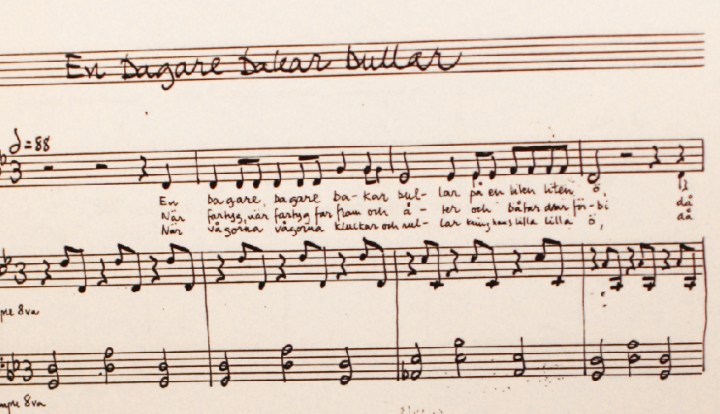 En bagare bakar bullar
=88
3
En bagare, bagare ba-kar bul-lar på en liten liten ö,
När fartyg, när fartyg far fram och å-ter och båtar drar för-bi då
När vågorna vågorna kluckar och rul-lar kring hans lilla lilla ö, då
3
8va
3
8va